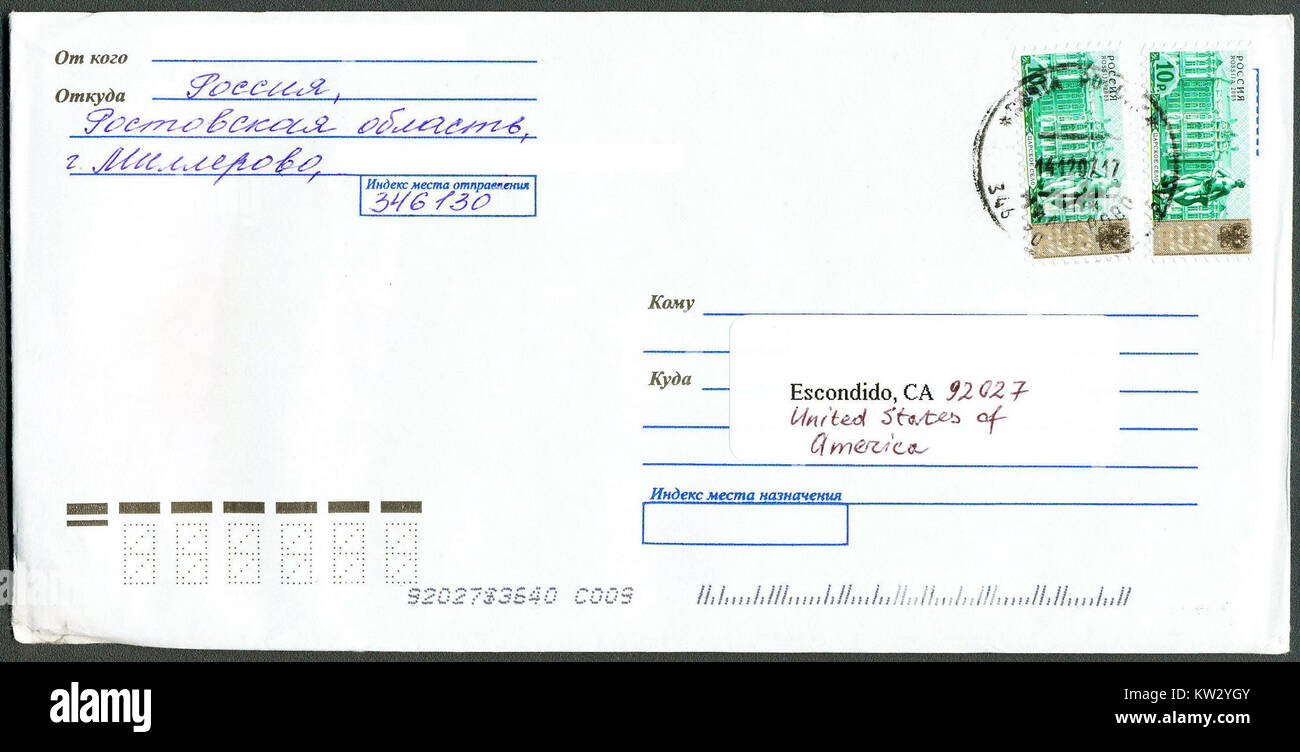 От кого
Откуда Россия,
Ростовская область,
г. Миллерово,
Индекс места отправления
346130
РОССИЯ
ROSSIA 2003
10р.
ЦАРСКОЕ СЕЛО
RUS
РОССИЯ
ROSSIA 2003
10р.
ЦАРСКОЕ СЕЛО
RUS
346
Кому
Куда
Escondido, CA 92027
United States of
America
Индекс места назначения
92027$3640 C009
alamy
alamy
Image ID: KW2YGY
www.alamy.com